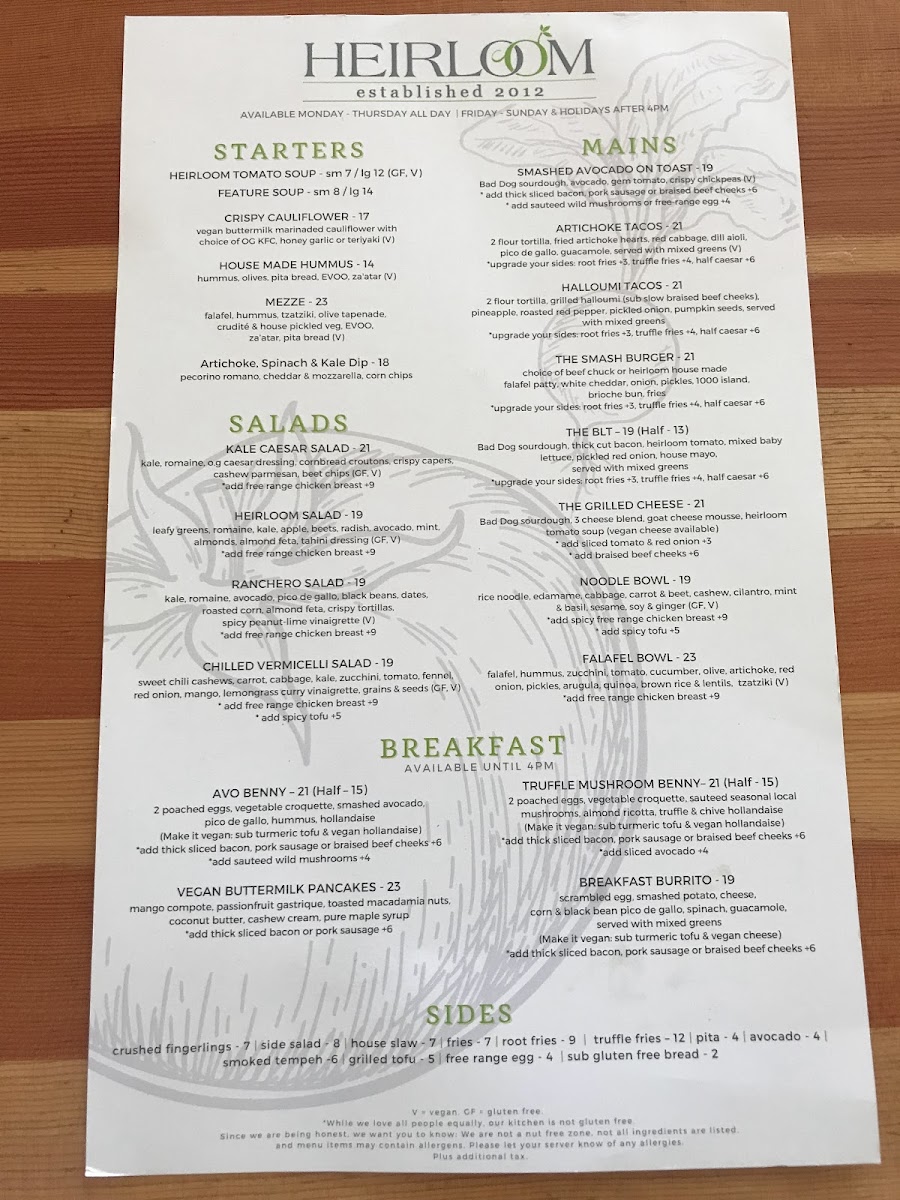 HEIRLOOM
established 2012
AVAILABLE MONDAY - THURSDAY ALL DAY | FRIDAY - SUNDAY & HOLIDAYS AFTER 4PM
STARTERS
HEIRLOOM TOMATO SOUP - sm 7 / lg 12 (GF, V)
FEATURE SOUP - sm 8 / lg 14
CRISPY CAULIFLOWER - 17
vegan buttermilk marinaded cauliflower with
choice of OG KFC, honey garlic or teriyaki (V)
HOUSE MADE HUMMUS - 14
hummus, olives, pita bread, EVOO, za'atar (V)
MEZZE - 23
falafel, hummus, tzatziki, olive tapenade,
crudité & house pickled veg, EVOO,
za'atar, pita bread (V)
Artichoke, Spinach & Kale Dip - 18
pecorino romano, cheddar & mozzarella, corn chips
SALADS
KALE CAESAR SALAD - 21
kale, romaine, o.g caesar dressing, cornbread croutons, crispy capers,
cashew parmesan, beet chips (GF, V)
*add free range chicken breast +9
HEIRLOOM SALAD - 19
leafy greens, romaine, kale, apple, beets, radish, avocado, mint,
almonds, almond feta, tahini dressing (GF, V)
*add free range chicken breast +9
RANCHERO SALAD - 19
kale, romaine, avocado, pico de gallo, black beans, dates,
roasted corn, almond feta, crispy tortillas,
spicy peanut-lime vinaigrette (V)
*add free range chicken breast +9
CHILLED VERMICELLI SALAD - 19
sweet chili cashews, carrot, cabbage, kale, zucchini, tomato, fennel,
red onion, mango, lemongrass curry vinaigrette, grains & seeds (GF, V)
* add free range chicken breast +9
* add spicy tofu +5
MAINS
SMASHED AVOCADO ON TOAST - 19
Bad Dog sourdough, avocado, gem tomato, crispy chickpeas (V)
* add thick sliced bacon, pork sausage or braised beef cheeks +6
* add sauteed wild mushrooms or free-range egg +4
ARTICHOKE TACOS - 21
2 flour tortilla, fried artichoke hearts, red cabbage, dill aioli,
pico de gallo, guacamole, served with mixed greens (V)
*upgrade your sides: root fries +3, truffle fries +4, half caesar +6
HALLOUMI TACOS - 21
2 flour tortilla, grilled halloumi (sub slow braised beef cheeks),
pineapple, roasted red pepper, pickled onion, pumpkin seeds, served
with mixed greens
*upgrade your sides: root fries +3, truffle fries +4, half caesar +6
THE SMASH BURGER - 21
choice of beef chuck or heirloom house made
falafel patty, white cheddar, onion, pickles, 1000 island,
brioche bun, fries
*upgrade your sides: root fries +3, truffle fries +4, half caesar +6
THE BLT – 19 (Half - 13)
Bad Dog sourdough, thick cut bacon, heirloom tomato, mixed baby
lettuce, pickled red onion, house mayo,
served with mixed greens
*upgrade your sides: root fries +3, truffle fries +4, half caesar +6
THE GRILLED CHEESE - 21
Bad Dog sourdough, 3 cheese blend, goat cheese mousse, heirloom
tomato soup (vegan cheese available)
* add sliced tomato & red onion +3
* add braised beef cheeks +6
NOODLE BOWL - 19
rice noodle, edamame, cabbage, carrot & beet, cashew, cilantro, mint
& basil, sesame, soy & ginger (GF, V)
*add spicy free range chicken breast +9
* add spicy tofu +5
FALAFEL BOWL - 23
falafel, hummus, zucchini, tomato, cucumber, olive, artichoke, red
onion, pickles, arugula, quinoa, brown rice & lentils, tzatziki (V)
*add free range chicken breast +9
BREAKFAST
AVAILABLE UNTIL 4PM
AVO BENNY – 21 (Half – 15)
2 poached eggs, vegetable croquette, smashed avocado,
pico de gallo, hummus, hollandaise
(Make it vegan: sub turmeric tofu & vegan hollandaise)
*add thick sliced bacon, pork sausage or braised beef cheeks +6
*add sauteed wild mushrooms +4
VEGAN BUTTERMILK PANCAKES - 23
mango compote, passionfruit gastrique, toasted macadamia nuts,
coconut butter, cashew cream, pure maple syrup
*add thick sliced bacon or pork sausage +6
TRUFFLE MUSHROOM BENNY– 21 (Half - 15)
2 poached eggs, vegetable croquette, sauteed seasonal local
mushrooms, almond ricotta, truffle & chive hollandaise
(Make it vegan: sub turmeric tofu & vegan hollandaise)
*add thick sliced bacon, pork sausage or braised beef cheeks +6
*add sliced avocado +4
BREAKFAST BURRITO - 19
scrambled egg, smashed potato, cheese,
corn & black bean pico de gallo, spinach, guacamole,
served with mixed greens
(Make it vegan: sub turmeric tofu & vegan cheese)
*add thick sliced bacon, pork sausage or braised beef cheeks +6
SIDES
crushed fingerlings - 7 | side salad - 8 | house slaw - 7 | fries - 7 | root fries - 9 | truffle fries – 12 | pita - 4 | avocado - 4 |
smoked tempeh -6 | grilled tofu - 5 | free range egg - 4 | sub gluten free bread - 2
V = vegan. GF = gluten free.
*While we love all people equally, our kitchen is not gluten free.
Since we are being honest, we want you to know: We are not a nut free zone, not all ingredients are listed,
and menu items may contain allergens. Please let your server know of any allergies.
Plus additional tax.